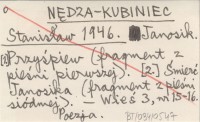 NĘDZA-KUBINIEC
Stanisław 1946. Janosik.
[1] Przyśpiew (fragment z
pieśni pierwszej). [2.] Śmierć
Janosika (fragment z pieśni
siódmej). – Wieś 3, nr 15-16.
Poezja.